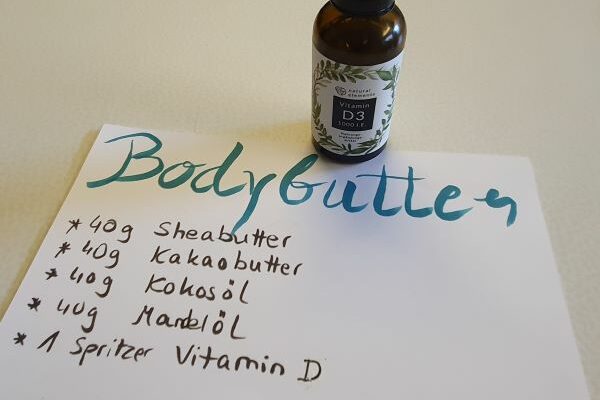 natural
elements
Vitamin
D3
1000 I.E.
Bodybutter
* 40g Sheabutter
* 40g Kakaobutter
* 40g Kokosöl
* 40g Mandelöl
* 1 Spritzer Vitamin D